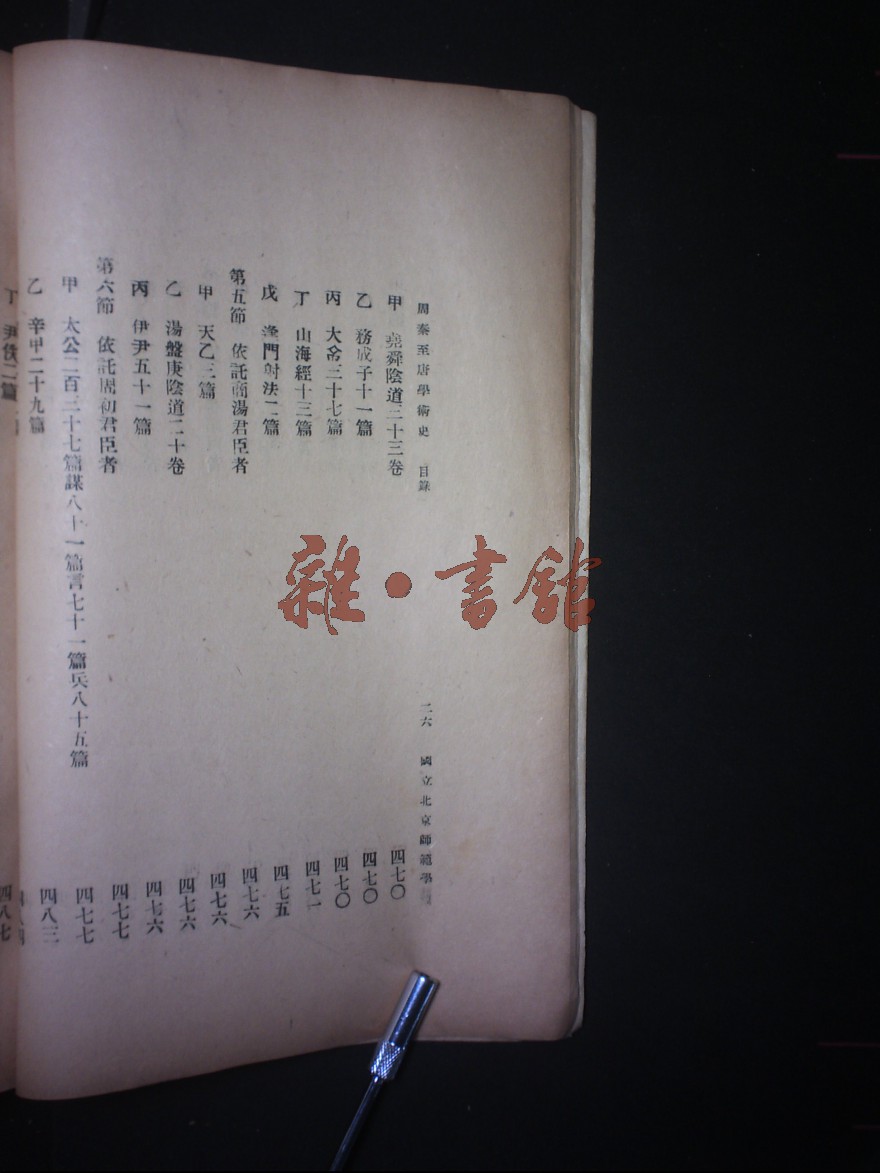 周秦至唐學術史 目錄 二六 國立北京師範學
甲 堯舜陰道二十三卷 四七〇
乙 務成子十一篇 四七〇
丙 大㿝三十七篇 四七〇
丁 山海經十三篇 四七一
戊 逢門射法二篇 四七五
第五節 依託商湯君臣者 四七六
甲 天乙三篇 四七六
乙 湯盤庚陰道二十卷 四七六
丙 伊尹五十一篇 四七六
第六節 依託周初君臣者 四七七
甲 太公二百三十七篇謀八十一篇言七十一篇兵八十五篇 四七七
乙 辛甲二十九篇 四八三
丁 尹佚二篇 四八七
雜·書館